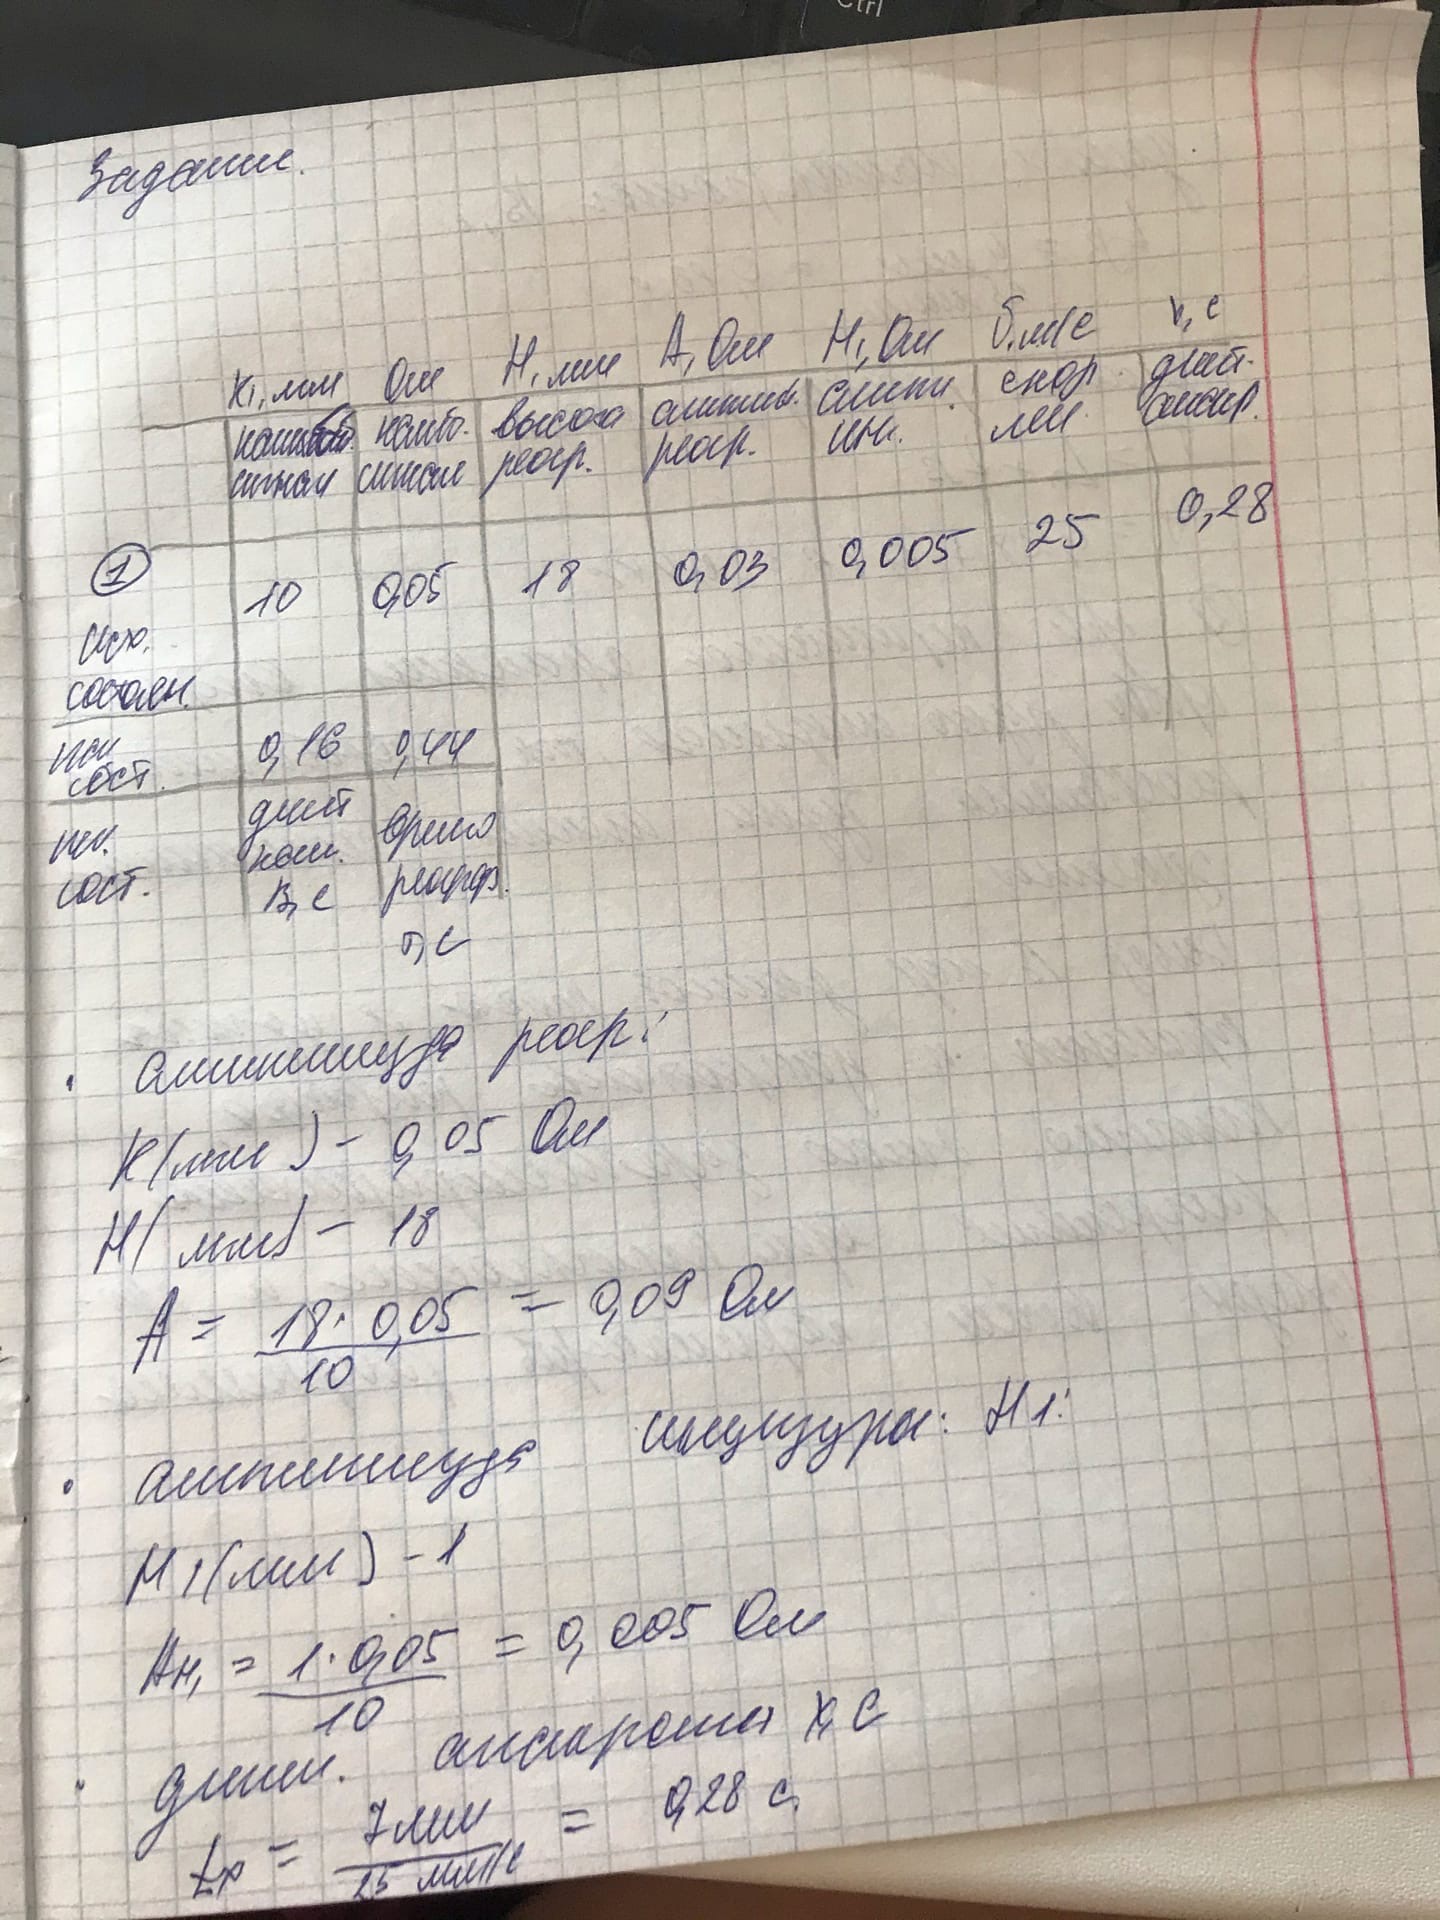 Ctrl
Задание.
К1, мм Ом Н, мм А, Ом Н1, Ом б, мм/с х, с
калибр. калибр. высота амплит. амплит. скор. длит.
сигнал сигнал реогр. реогр. инц. лен. анакр.
① 10 0,05 18 0,03 0,005 25 0,28
исх.
состоян.
0,16 0,44
сост.
длит время
сост. реогр.
в, с
с
• амплитуда реогр:
К(мм) - 0,05 Ом
Н(мм) - 18
А = 18 · 0,05 / 10 = 0,09 Ом
• амплитуда инцизура: Н1:
Н1(мм) - 1
Ан1 = 1 · 0,05 / 10 = 0,005 Ом
• длит. анакрота х, с
tx = 7 мм / 25 мм/с = 0,28 с